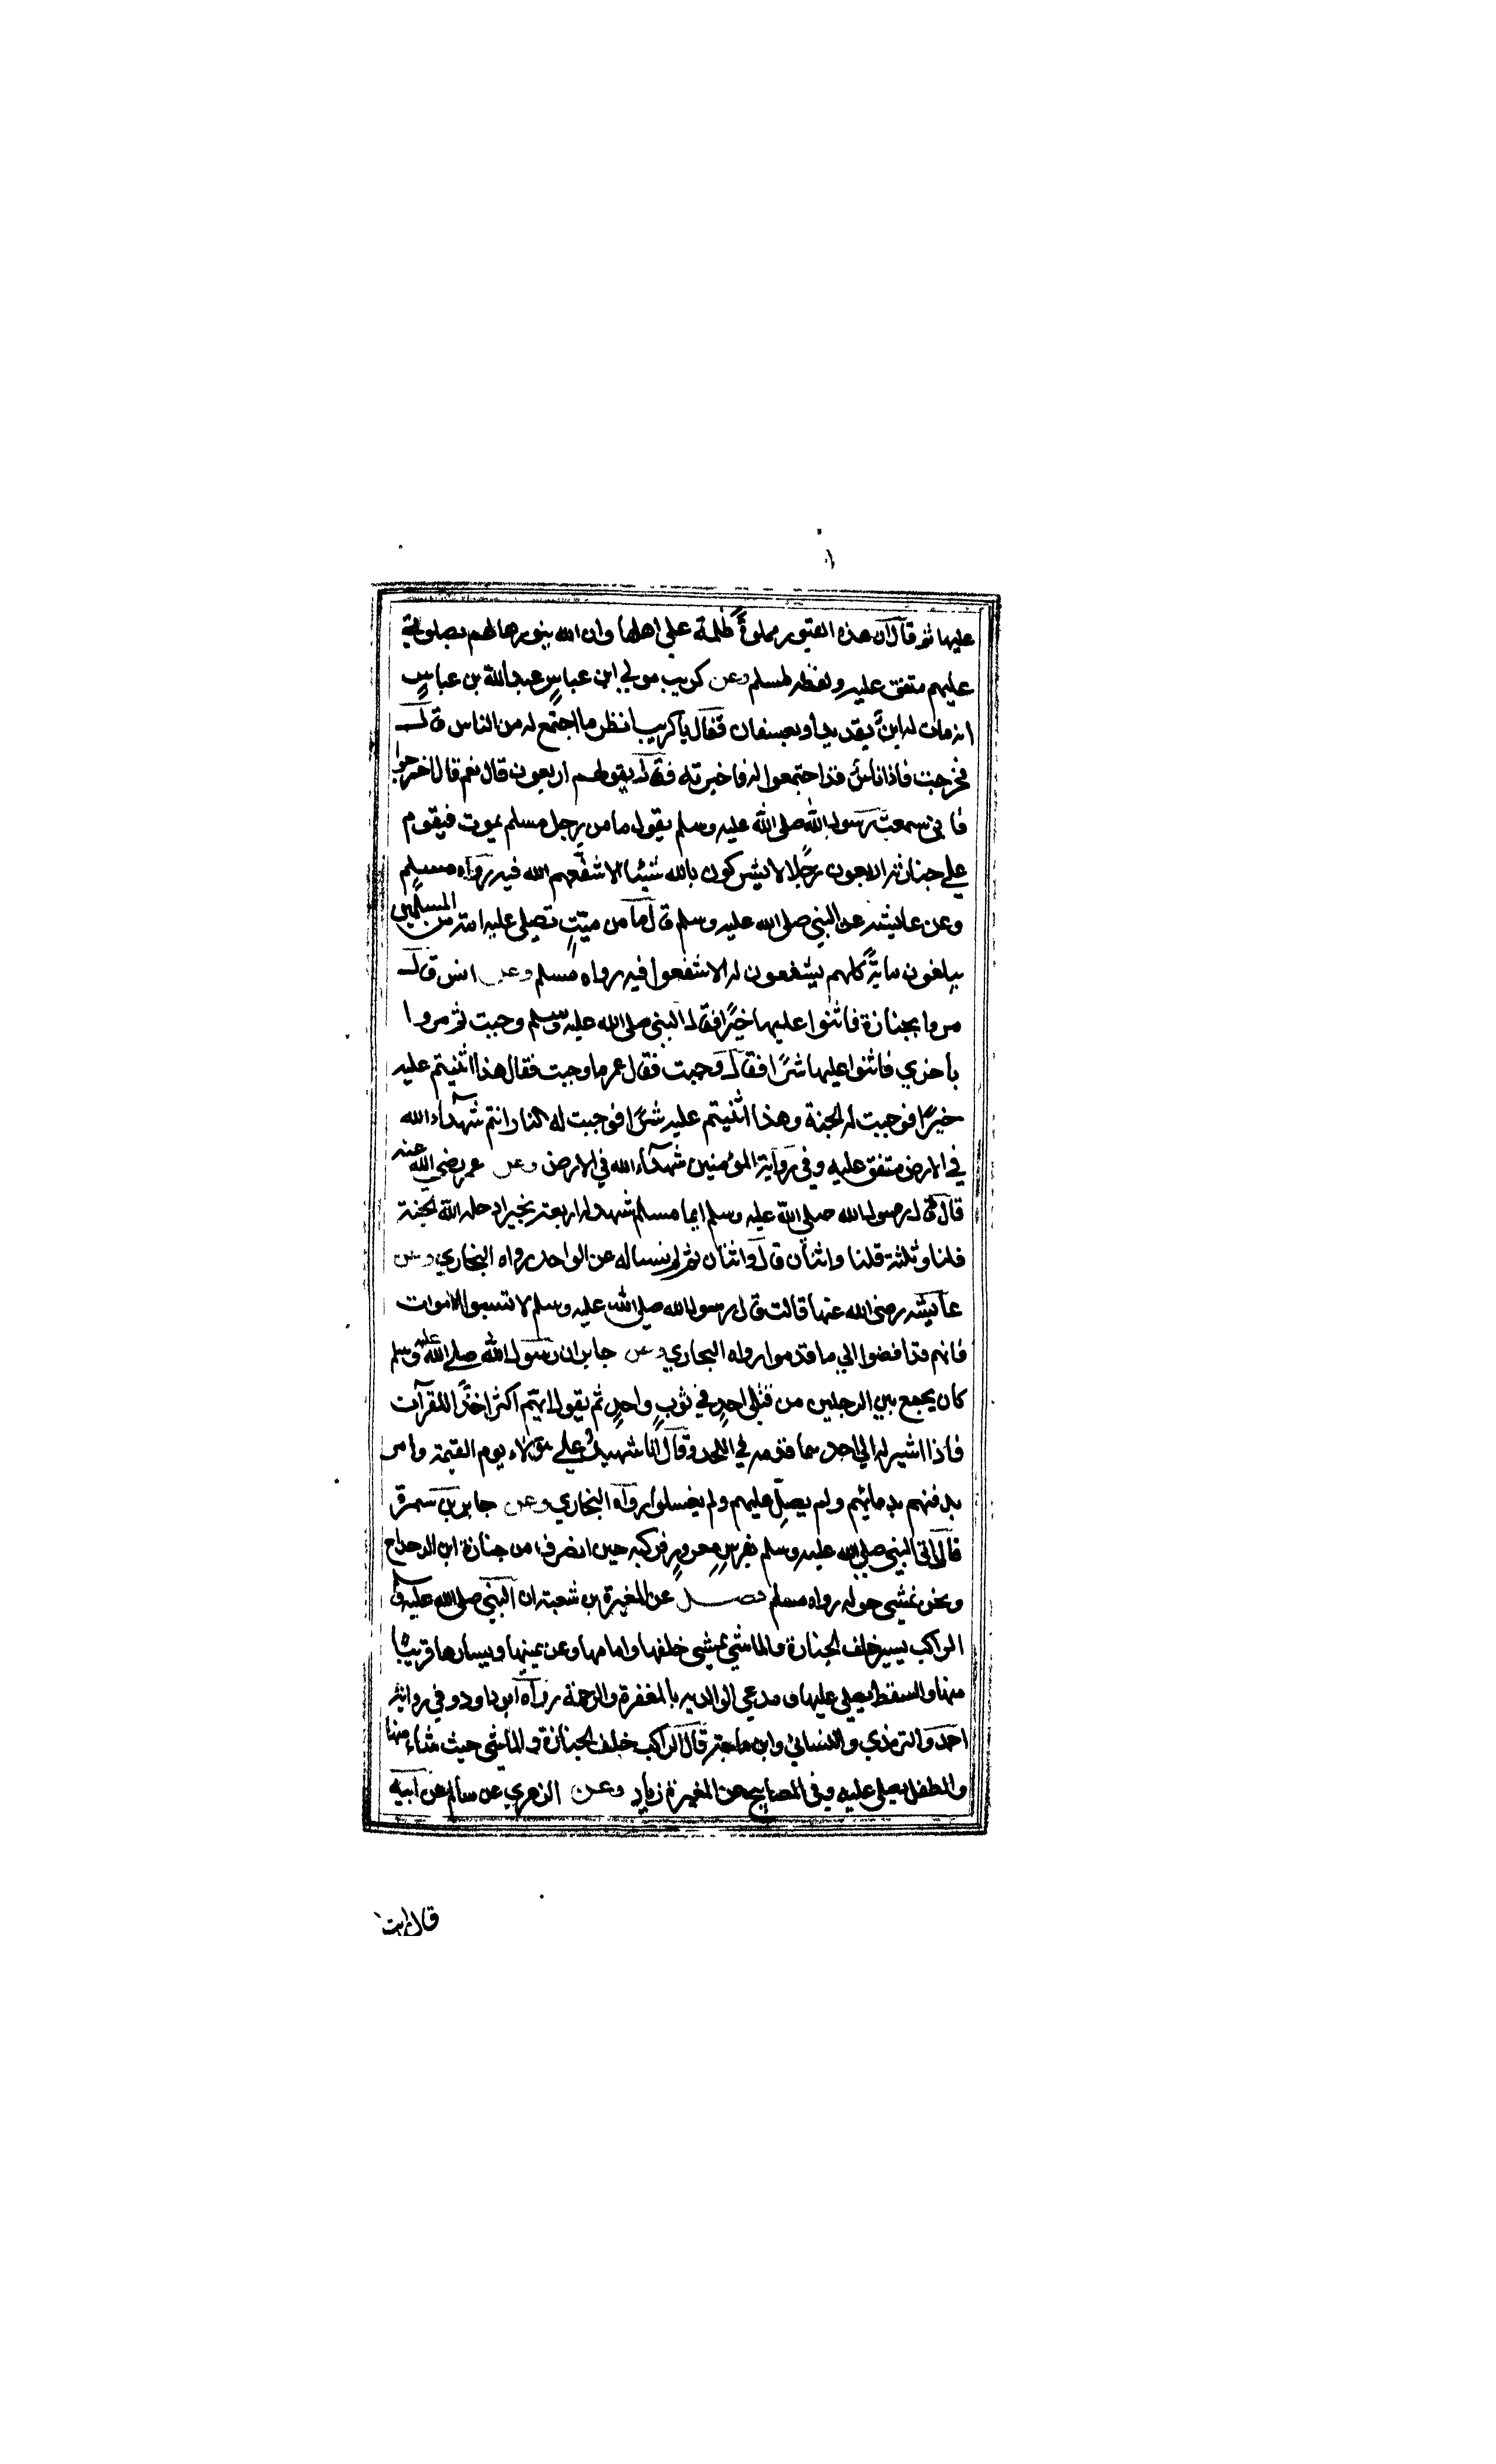 عليها ثم قال ان هذه القبور مملوءة ظلمة على اهلها وان الله ينورها لهم بصلوتي
عليهم متفق عليه ولفظه لمسلم وعن كريب مولي ابن عباس عبد الله بن عباس
انه مات له ابن بقديد او بعسفان فقال يا كريب انظر ما اجتمع له من الناس قال
فخرجت فاذا ناس قد اجتمعوا له فاخبرته فقال يقول هم اربعون قال نعم قال اخرجوا
فاني سمعت رسول الله صلى الله عليه وسلم يقول ما من رجل مسلم يموت فيقوم
علي جنازته اربعون رجلا لا يشركون بالله شيئا الا شفعهم الله فيه رواه مسلم
وعن عايشة عن النبي صلى الله عليه وسلم قال ما من ميت تصلي عليه امة من المسلمين
يبلغون ماية كلهم يشفعون له الا شفعوا فيه رواه مسلم وعن انس قال
مروا بجنازة فاثنوا عليها خيرا فقال النبي صلى الله عليه وسلم وجبت ثم مروا
باخري فاثنوا عليها شرا فقال وجبت فقال عمر ما وجبت فقال هذا اثنيتم عليه
خيرا فوجبت له الجنة وهذا اثنيتم عليه شرا فوجبت له النار انتم شهداء الله
في الارض متفق عليه وفي رواية المؤمنين شهداء الله في الارض وعن عمر رضي الله عنه
قال قال رسول الله صلي الله عليه وسلم ايما مسلم شهد له اربعة بخير ادخله الله الجنة
قلنا وثلثة قلنا واثنان قال واثنان ثم لم نساله عن الواحد رواه البخاري وعن
عايشة رضي الله عنها قالت قال رسول الله صلي الله عليه وسلم لا تسبوا الاموات
فانهم قد افضوا الي ما قدموا رواه البخاري وعن جابر ان رسول الله صلي الله عليه وسلم
كان يجمع بين الرجلين من قتلى احد في ثوب واحد ثم يقول ايهم اكثر اخذا للقرآن
فاذا اشير له الي احدهما قدمه في اللحد وقال انا شهيد علي هؤلاء يوم القيمة وامر
بدفنهم بدمائهم ولم يصل عليهم ولم يغسلوا رواه البخاري وعن جابر بن سمرة
قال اتي النبي صلي الله عليه وسلم بفرس معرور فركبه حين انصرف من جنازة ابن الدحداح
ونحن نمشي حوله رواه مسلم فصل عن المغيرة بن شعبة ان النبي صلى الله عليه وسلم قال
الراكب يسير خلف الجنازة والماشي يمشي خلفها وامامها وعن يمينها ويسارها قريبا
منها والسقط يصلي عليها ويدعي لوالديه بالمغفرة والرحمة رواه ابو داود وفي رواية
احمد والترمذي والنسائي وابن ماجة قال الراكب خلف الجنازة والماشي حيث شاء منها
والطفل يصلي عليه وفي المصابيح عن المغيرة زياد وعن الزهري عن سالم عن ابيه
قال رايت